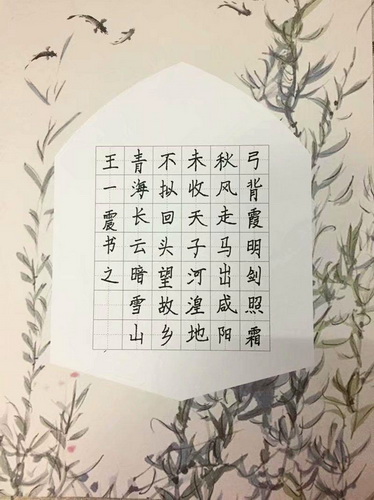 弓背霞明剑照霜
秋风走马出咸阳
未收天子河湟地
不拟回头望故乡
青海长云暗雪山
王一震书之